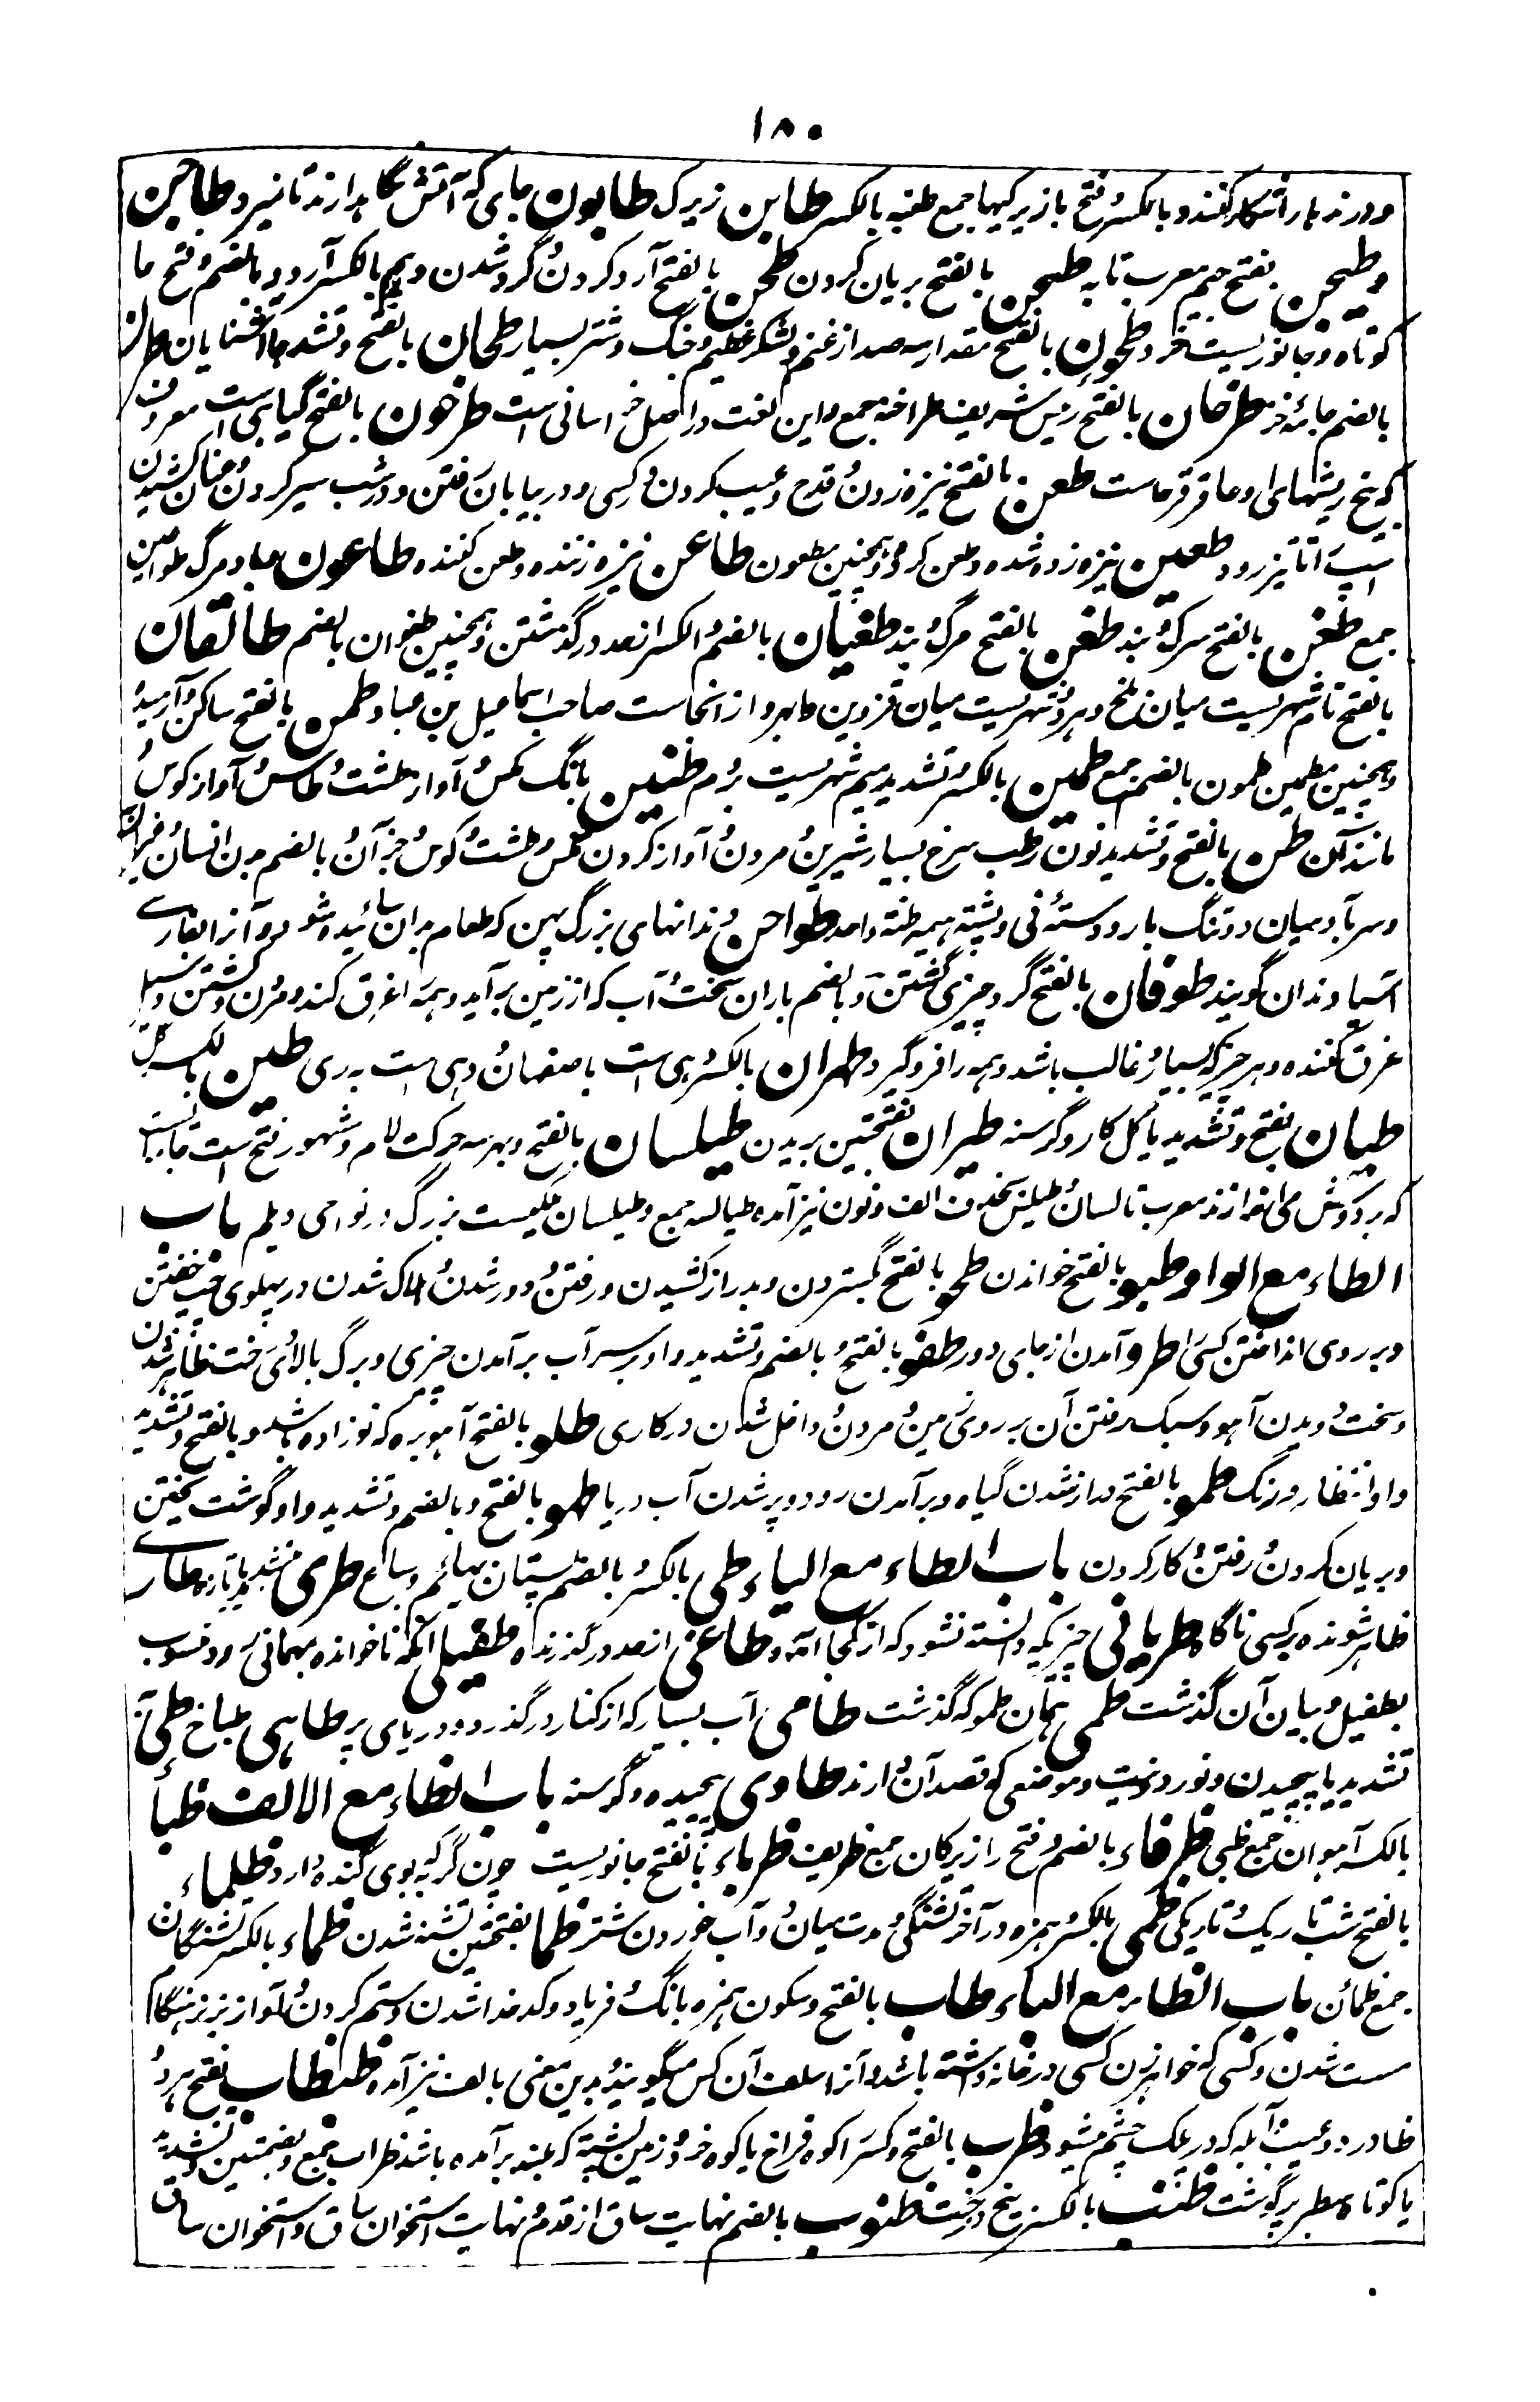 ۱۸۰
و درنده را شکار کنند و بالکسر و فتح با زیرکیها جمع طبنه بالکسر طابن زیرک طابون جای که آتش نگاه دارند تا نمیرد طاجن
و طیجن بفتح جیم معرب تابه طبجن بالفتح بریان کردن طحن بالفتح آرد کردن و گرد شدن و بالکسر آرد و بالضم و فتح حا
کوتاه و جانوریست خرد طحون بالفتح مقدار سه صد از غنم و لشکر عظیم و جنگ و شتر بسیار طحان بالفتح و تشدید حا آسیابان طرن
بالضم جامه خز طرخان بالفتح رئیس شریف طراخنه جمع و این لغت در اصل خراسانی است طرخون بالفتح گیاهی است معروف
که بیخ ریشهای او عاقرقرحاست طعن بالفتح نیزه زدن و قدح و عیب کردن در کسی و در بیابان رفتن و در شب سیر کردن و عنان کشیدن
اسپ را تا تیز رود طعین نیزه زده شده و طعن کرده و همچنین مطعون طاعن نیزه زننده و طعن کننده طاعون وبا و مرگ طواعین
جمع طغن بالفتح مرگ و بند طفن بالفتح مرگ و بند طغیان بالضم و الکسر از حد درگذشتن و همچنین طغوان بالضم طالقان
بالفتح نام شهریست میان بلخ و مرو و شهریست میان قزوین و ابهر و از آنجاست صاحب اسماعیل بن عباد طمن بالفتح ساکن و آرمیده
و همچنین مطمئن طمون بالضم جمع طمین بالکسر و تشدید میم شهریست بروم طنین بانگ مگس و آواز طشت و طاس و آواز کوس و
مانند آن طن بالفتح و تشدید نون رطب سرخ بسیار شیرین و مردن و آواز کردن مگس و طشت و کوس و جز آن و بالضم بدن انسان و غیر آن
و سربار و میان دو تنگ بار و دسته نی و پشته هیمه طنه واحد طواحن دندانهای بزرگ پهن که طعام بدان سائیده شود و آنرا بفارسی
آسیا دندان گویند طوفان بالفتح گرد چیزی گشتن و بالضم باران سخت و آب که از زمین برآید و همه را غرق کند و مردن و کشتن و سیل
غرق کننده و هر چیز که بسیار و غالب باشد و همه را فرو گیرد طهران بالکسر دهی است باصفهان و دهی است به ری طین بالکسر گل
طیان بفتح و تشدید یا گل کار و گرسنه طیران بفتحتین پریدن طیلسان بالفتح و بهر سه حرکت لام و مشهور فتح است
که بر دوش می اندازند معرب تالسان و طیلس بحذف الف و نون نیز آمده طیالسه جمع و طیلسان ملکیست بزرگ در نواحی دیلم باب
الطاء مع الواو طبو بالفتح خواندن طحو بالفتح گستردن و بدراز کشیدن و رفتن و دور شدن و هلاک شدن و بر پهلوی چپ خفتن
و بر روی انداختن کسی را طرو آمدن از جای دور طفو بالفتح و بالضم و تشدید واو بر سر آب برآمدن چیزی و برگ بالای درخت ظاهر شدن
و سخت دویدن آهو و سبک رفتن آن بر روی زمین و مردن و داخل شدن در کاری طلو بالفتح آهو بره که نو زاده باشد و بالفتح و تشدید
واو انتظار و درنگ طمو بالفتح دراز شدن گیاه و برآمدن رود و پر شدن آب دریا طهو بالفتح و بالضم و تشدید واو گوشت پختن
و بریان کردن و رفتن و کار کردن باب الطاء مع الیاء طبی بالکسر و بالضم پستان بهائم و سباع طری تازه طاری
ظاهر شونده بر کسی ناگاه طریانی چیزیکه دانسته نشود که از کجا آمد طاغی از حد درگذرنده طفیلی آنکه ناخوانده بمهمانی رود منسوب
بطفیل و بیان آن گذشت طمی همان طمو که گذشت طامی آب بسیار که از کنار درگذرد و دریای پر طاهی طباخ طی
تشدید یا پیچیدن و نوردیدن و نیت و موضعی که قصد آن دارند طاوی پیچیده و گرسنه باب الظاء مع الالف ظبا
بالکسر آهوان جمع ظبی ظرفاء بالضم و فتح را زیرکان جمع ظریف ظرباء بالفتح جانوریست چون گربه بوی گنده دارد ظلماء
بالفتح شب تاریک و تاریکی ظمی بالکسر و همزه در آخر تشنگی و مدت میان دو آب خوردن شتر ظما بفتحتین تشنه شدن ظماء بالکسر تشنگان
جمع ظمآن باب الظاء مع الباء ظاب بالفتح و سکون همزه بانگ و فریاد و کدخدا شدن و ستم کردن و آواز بز نر هنگام
مست شدن و کسی که خواهر زن کسی در خانه داشته باشد و آنرا سلف آن کس میگویند و بدین معنی بالف نیز آمده ظبظاب بفتح هر دو
ظا درد و عیب و آبله که در پلک چشم میشود ظرب بالفتح و کسر را کوه فراخ یا کوه خرد و زمین پشته که بلند برآمده باشد ظراب جمع و بضمتین و تشدید
با کوتاه سطبر پر گوشت ظنب بالکسر بیخ درخت ظنبوب بالضم نهایت ساق از قدم و نهایت استخوان ساق و استخوان ساق